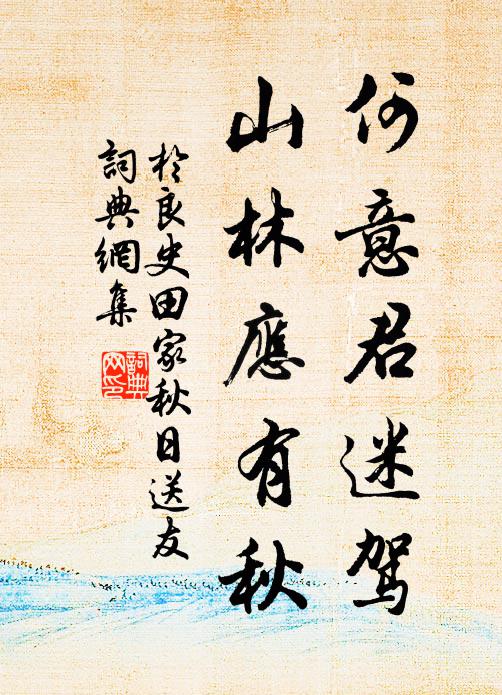 何意君迷駕
山林應有秋
於良史田家秋日送友
詞典網集
詞典
网印